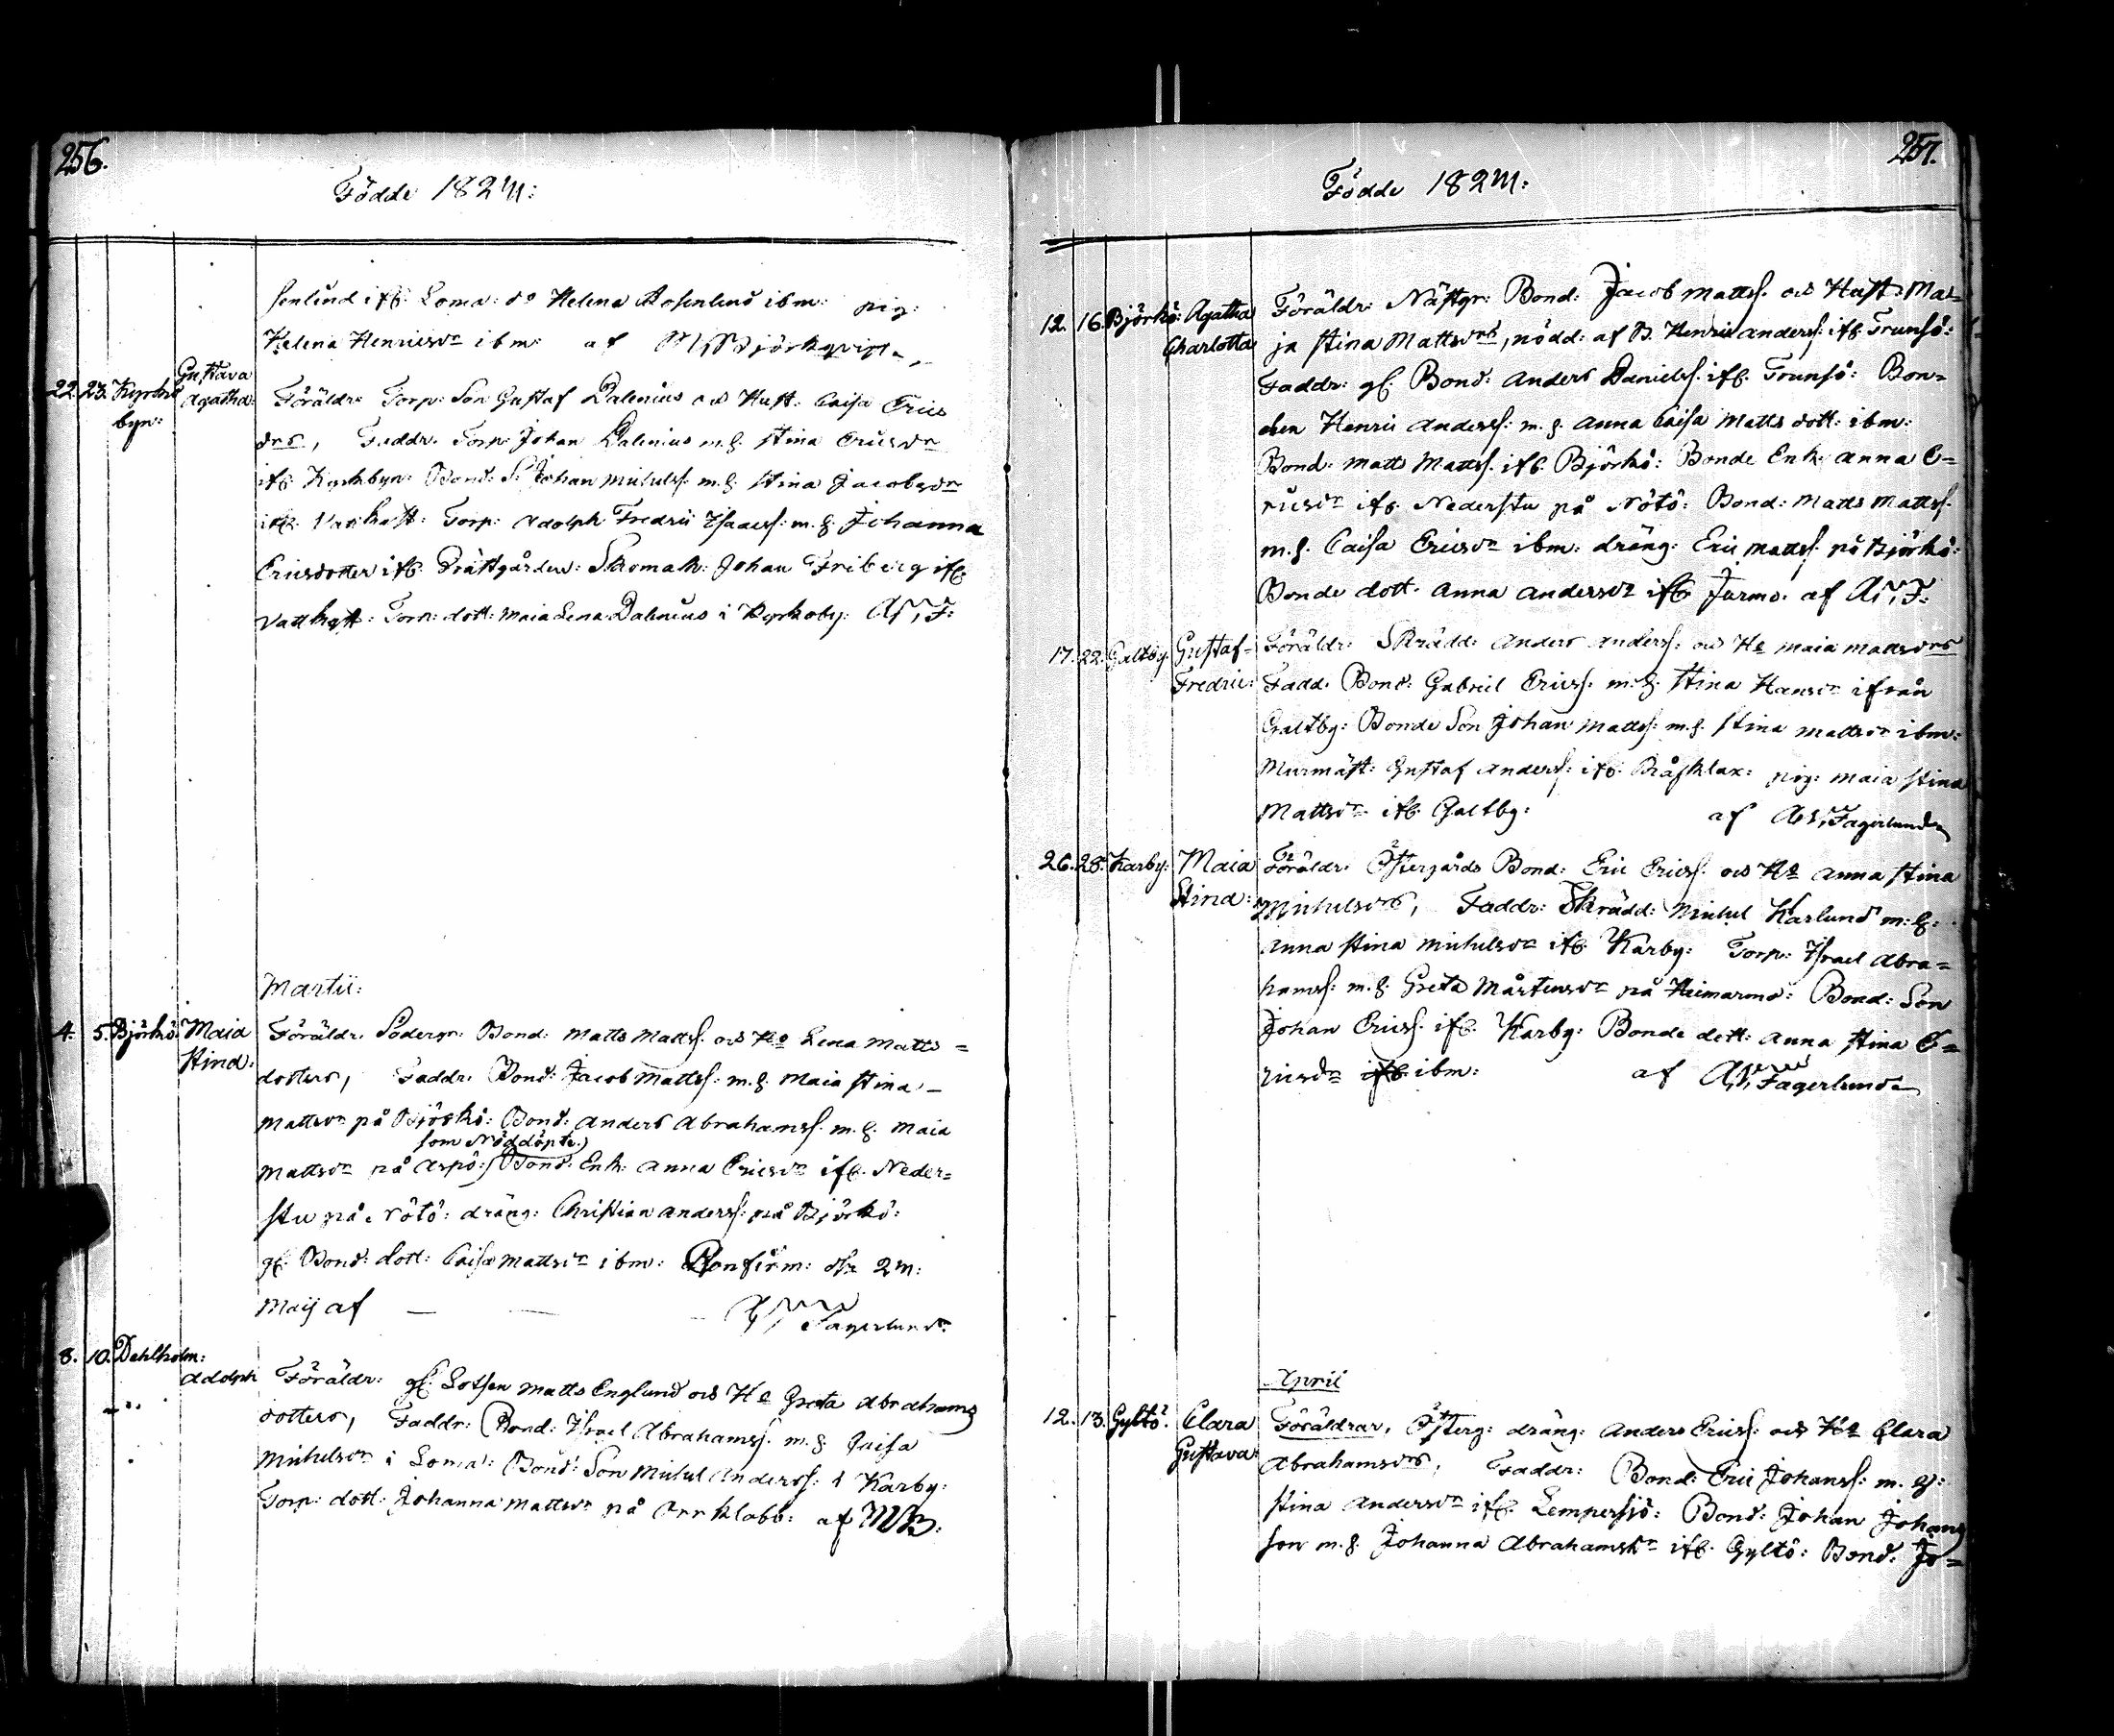 256.
Födde 1824:
senlund ifr. Loma: do Helena Rosenlund ibm: pig:
Helena Henricsdr ibm: af M, Björkqvist
22. 23. Kyrko
byn:
Gustava
Agatha:
Föräldr: Torp: Son Gustaf Dalenius och Hust: Caisa Erics
drs, Faddr. Torp: Johan Dalenius m.h. Stina Ericsdr
ifr. Kyrkbyn: Bond: S. Johan Michelss: m.h. Stina Jacobsdr
ifr. Vattkast: Torp: Adolph Fredric Isacss: m.h. Johanna
Ericsdotter ifr. Prästgården: Skomak: Johan Friberg ifr.
Vattkast: Torp: dott: Maia Lena Dalenius i Kyrkoby: A, F:
Martii:
4. 5. Björkö: Maia
Stina:
Föräldr. Södergr: Bond: Matts Mattss. och Ho Lena Matts=
dotters, Faddr. Bond: Jacob Mattss: m.h. Maia Stina
Mattsdr på Björkö: Bond: Anders Abrahamss. m.h. Maia
som Nöddöpte.)
Mattsdr på Aspö: Bond: Enk: Anna Ericsdr ifr. Neder=
stu på Nötö: dräng: Christian Anderss: på Björkö:
gl. Bond: dott: Caisa Mattsdr ibm: Confirm: d. 24:
Maij af Fagerlund.
8. 10. Dahlholm:
Adolph
Föräldr: gl. Lotsen Matts Englund och Ho Greta Abrahams
dotters, Faddr: Bond: Israel Abrahamss. m.h. Caisa
Michelsdr i Loma: Bond: Son Michel Anderss: i Karby:
Torp: dott: Johanna Mattsdr på Orrklobb: af MB:
257.
Födde 1824:
12. 16. Björkö: Agatha
Charlotta
Föräldr: Nästgr: Bond: Jacob Mattss. och Hust: Ma=
ja Stina Mattsdrs, nödd: af B. Henric Anderss: ifr. Trunsö:
Faddr: gl. Bond: Anders Danielss. ifr. Trunsö: Bon=
den Henric Anderss: m.h. Anna Caisa Matts dott: ibm:
Bond: Matts Mattss. ifr. Björkö: Bonde Enk: Anna E=
ricsdr ifr. Nederstu på Nötö: Bond: Matts Mattss.
m.h. Caisa Ericsdr ibm: dräng: Eric Mattss. på Björkö:
Bonde dott. Anna Andersdr ifr. Jurmo. af A, F:
17. 22. Galtby. Gustaf=
Fredric:
Föräldr: Skrädd: Anders Anderss: och Ho Maia Mattsdrs
Fadd. Bond: Gabriel Ericss. m.h. Stina Hansdr ifrån
Galtby: Bonde Son Johan Mattss: m.h. Stina Mattsdr ibm:
Murmäst: Gustaf Anderss: ifr. Bråsklax: pig: Maia Stina
Mattsdr ifr. Galtby: af A, Fagerlund
26. 28. Karby: Maia
Stina:
Föräldr. Östergårds Bond: Eric Ericss. och Ho Anna Stina
Michelsdrs, Faddr: Skrädd: Michel Karlund m.h.
Anna Stina Michelsdr ifr. Karby: Torp: Israel Abra=
hamss: m.h. Greta Mårtensdr på Heimarmo: Bond: Son
Johan Ericss. ifr. Karby: Bonde dott: Anna Stina E=
ricsdr ifr. ibm: af A, Fagerlund
April
12. 13. Gyltö. Clara
Gustava:
Föräldrar, Österg: dräng: Anders Ericss: och Ho Clara
Abrahamsdrs, Faddr: Bond: Eric Johanss: m.h:
Stina Andersdr ifr. Lempersjö: Bond: Johan Johans
son m.h. Johanna Abrahamsdr ifr. Gyltö: Bond: Jo=